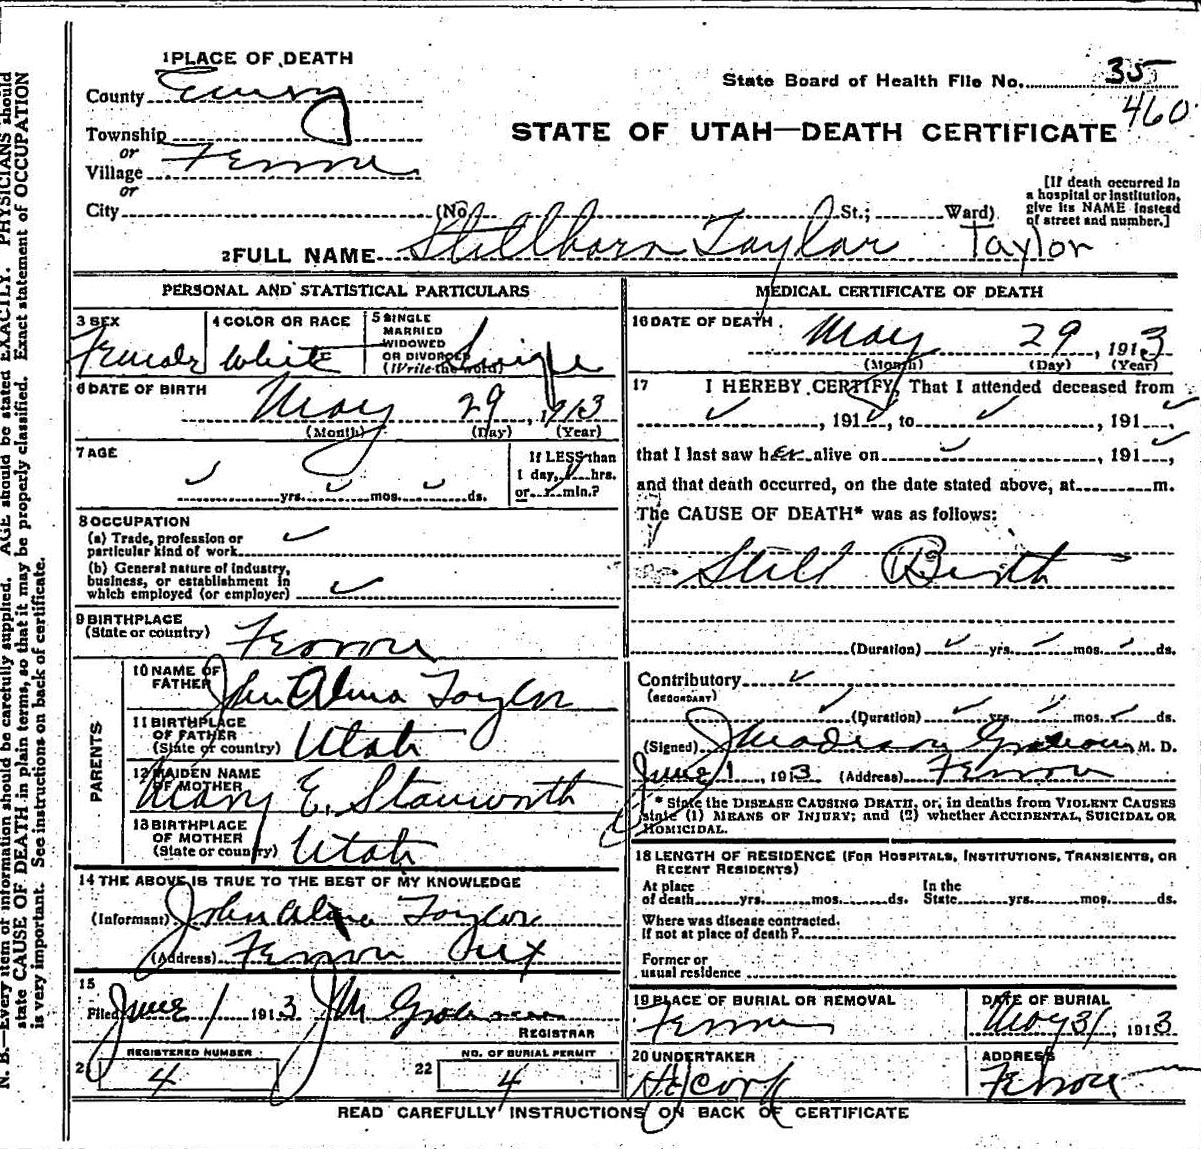 N. B.—Every item of information should be carefully supplied. AGE should be stated EXACTLY. PHYSICIANS should
state CAUSE OF DEATH in plain terms, so that it may be properly classified. Exact statement of OCCUPATION
is very important. See instructions on back of certificate.
1 PLACE OF DEATH
County Emery
Township
or
Village Ferron
or
City (No. St.; Ward)
State Board of Health File No. 35
460
STATE OF UTAH—DEATH CERTIFICATE
[If death occurred in
a hospital or institution,
give its NAME instead
of street and number.]
2 FULL NAME Stillborn Taylor Taylor
PERSONAL AND STATISTICAL PARTICULARS
3 SEX
Female
4 COLOR OR RACE
White
5 SINGLE
MARRIED
WIDOWED
OR DIVORCED
(Write the word)
Single
6 DATE OF BIRTH
May 29, 1913
(Month) (Day) (Year)
7 AGE
yrs. mos. ds.
If LESS than
1 day, hrs.
or min.?
8 OCCUPATION
(a) Trade, profession or
particular kind of work
(b) General nature of industry,
business, or establishment in
which employed (or employer)
9 BIRTHPLACE
(State or country) Ferron
PARENTS
10 NAME OF
FATHER John Alma Taylor
11 BIRTHPLACE
OF FATHER
(State or country) Utah
12 MAIDEN NAME
OF MOTHER
Mary E. Stanworth
13 BIRTHPLACE
OF MOTHER
(State or country) Utah
14 THE ABOVE IS TRUE TO THE BEST OF MY KNOWLEDGE
(Informant) John Alma Taylor
(Address) Ferron
15
Filed June 1 1913
REGISTRAR
REGISTERED NUMBER
21 4
NO. OF BURIAL PERMIT
22 4
MEDICAL CERTIFICATE OF DEATH
16 DATE OF DEATH
May 29, 1913
(Month) (Day) (Year)
17 I HEREBY CERTIFY, That I attended deceased from
, 191 , to 191 ,
that I last saw her alive on , 191 ,
and that death occurred, on the date stated above, at m.
The CAUSE OF DEATH* was as follows:
Still Birth
(Duration) yrs. mos. ds.
Contributory
(SECONDARY)
(Duration) yrs. mos. ds.
(Signed) M. D.
June 1, 1913 (Address) Ferron
* State the DISEASE CAUSING DEATH, or, in deaths from VIOLENT CAUSES
state (1) MEANS OF INJURY; and (2) whether ACCIDENTAL, SUICIDAL OR
HOMICIDAL.
18 LENGTH OF RESIDENCE (FOR HOSPITALS, INSTITUTIONS, TRANSIENTS, OR
RECENT RESIDENTS)
At place
of death yrs. mos. ds.
In the
State yrs. mos. ds.
Where was disease contracted.
If not at place of death?
Former or
usual residence
19 PLACE OF BURIAL OR REMOVAL
Ferron
DATE OF BURIAL
May 31, 1913
20 UNDERTAKER
ADDRESS
Ferron
READ CAREFULLY INSTRUCTIONS ON BACK OF CERTIFICATE